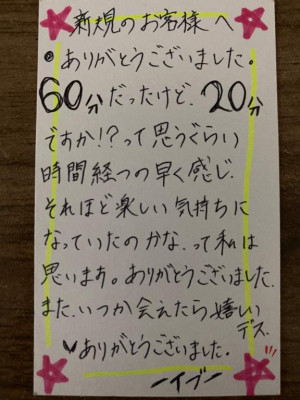 新規のお客様へ
ありがとうございました。
60分だったけど、20分
ですか!?って思うぐらい
時間経つの早く感じ、
それほど楽しい気持ちに
なっていたのかな、って私は
思います。ありがとうございました、
また、いつか会えたら嬉しい
デス、
ありがとうございました。
ーイブー